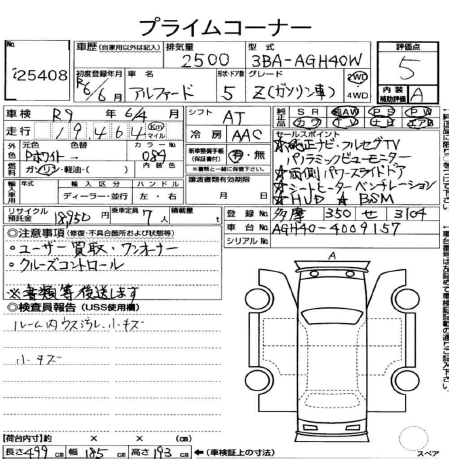 プライムコーナー
No. 25408
車歴 (自家用以外は記入) 排気量 2500 型式 3BA-AGH40W 評価点 5
初度登録年月 R6/6月 車名 アルファード 形状・ドア数 5 グレード Z(ガソリン車) 2WD 4WD 内装補助評価 A
車検 R9年 6/4月 シフト AT 純正品 SR AW PS PW
走行 19464 Km マイル 冷房 AAC
外色 元色 Pホワイト 色替 → カラーNo. 089 新車整備手帳 (保証書付) 有・無
ガソリン・軽油・( ) 内装色
セールスポイント
☆純正ナビ・フルセグTV
パノラミックビューモニター
☆両側パワースライドドア
☆シートヒーター ベンチレーション
☆HUD ☆BSM
輸入車用 年式 輸入区分 ハンドル 譲渡書類有効期限
ディーラー・並行 左・右 月 日
リサイクル預託金 18950円 乗車定員 7人 積載量 t
登録No. 多摩 350 せ 3104
車台No. AGH40-4009157
シリアルNo.
◎注意事項 (修復・不具合箇所および状態等)
・ユーザー買取・ワンオーナー
・クルーズコントロール
※書類等後送します
◎検査員報告 (USS使用欄)
ルーム内ウス汚レ・小キズ
小キズ
A
【荷台内寸】約 × × (cm)
長さ499cm 幅185cm 高さ193cm ←(車検証上の寸法)
スペア